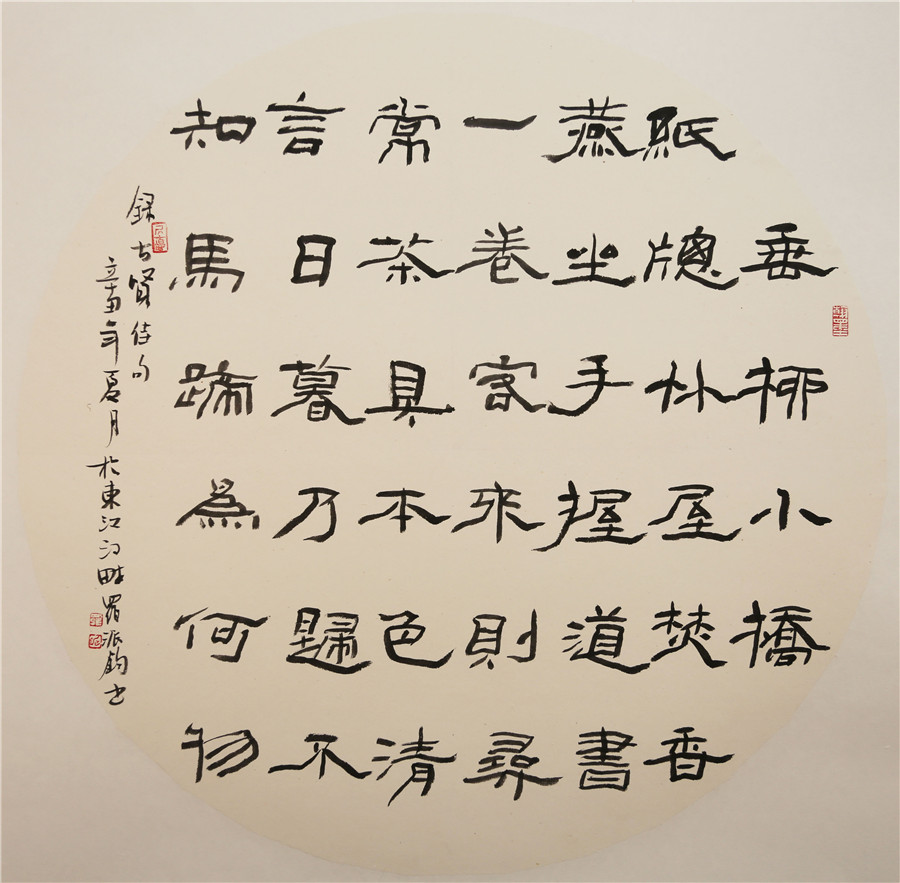 垂柳小橋
紙牕竹屋焚香
燕坐手握道書
一卷客來則尋
常茶具本色清
言日暮乃歸不
知馬蹄為何物
錄古賢佳句
辛丑年夏月於東江河畔羅派鈞書